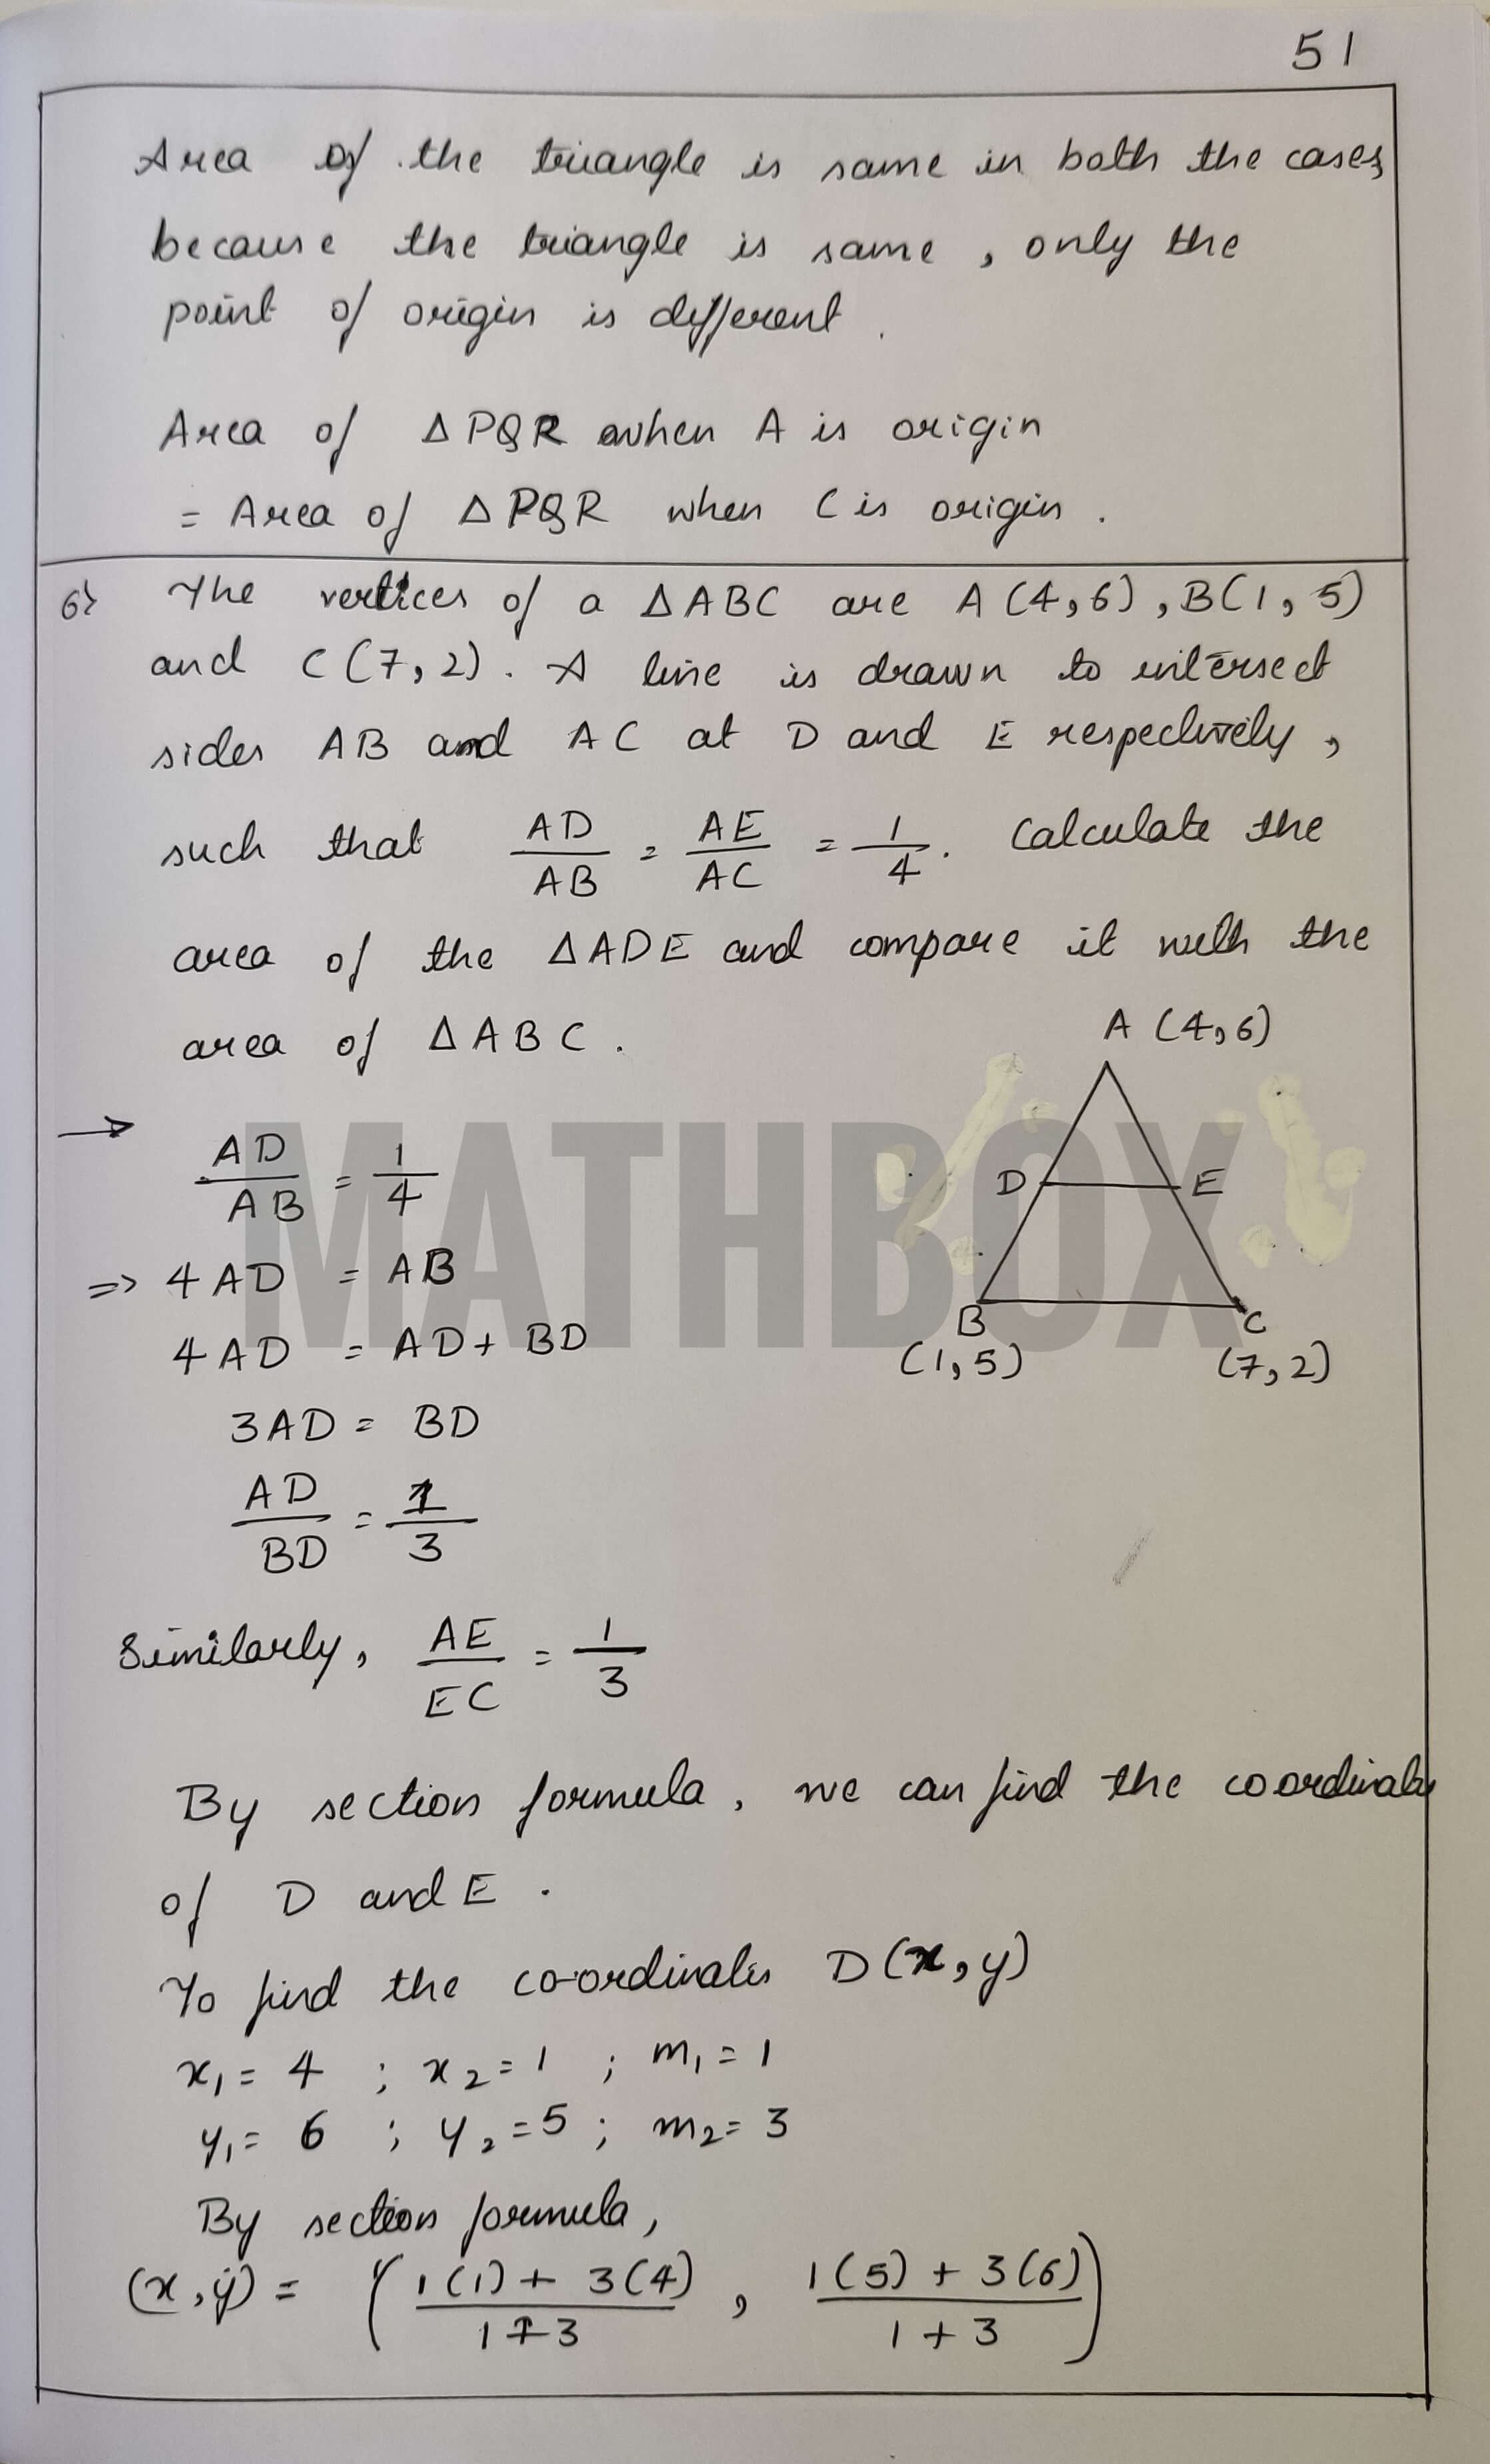 51
Area of the triangle is same in both the cases
because the triangle is same, only the
point of origin is different.
Area of Δ PQR when A is origin
= Area of Δ PQR when C is origin.
6) The vertices of a Δ ABC are A (4, 6), B(1, 5)
and C (7, 2). A line is drawn to intersect
sides AB and AC at D and E respectively,
such that AD/AB = AE/AC = 1/4. Calculate the
area of the Δ ADE and compare it with the
area of Δ ABC.
A (4, 6)
D E
B C
(1, 5) (7, 2)
MATHBOX
→ AD/AB = 1/4
=> 4 AD = AB
4 AD = AD + BD
3 AD = BD
AD/BD = 1/3
Similarly, AE/EC = 1/3
By section formula, we can find the coordinates
of D and E.
To find the co-ordinates D (x, y)
x₁ = 4 ; x₂ = 1 ; m₁ = 1
y₁ = 6 ; y₂ = 5 ; m₂ = 3
By section formula,
(x, y) = ( (1(1) + 3(4))/(1+3) , (1(5) + 3(6))/(1+3) )